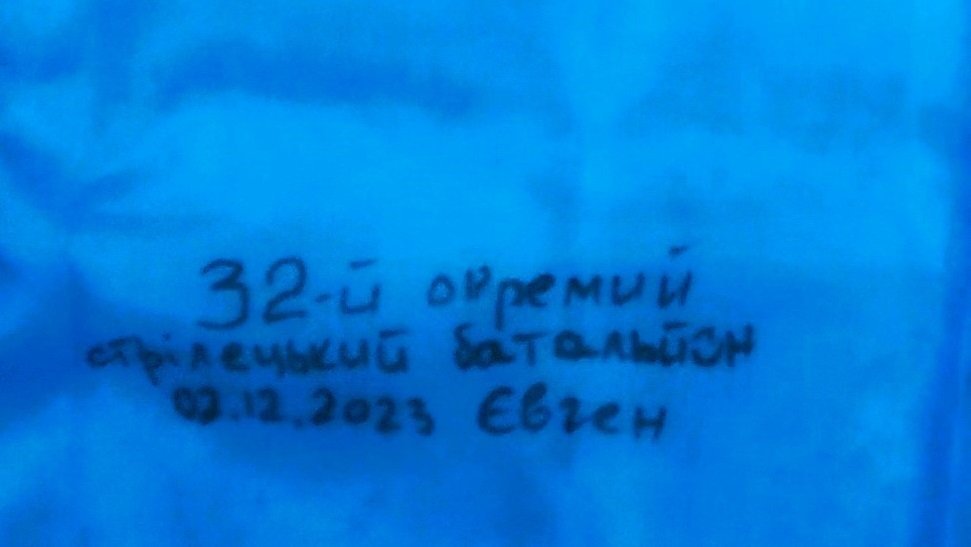 32-й окремий
стрілецький батальйон
02.12.2023 Євген